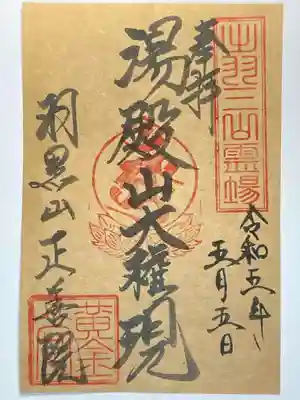 出羽三山霊場
令和五年
五月五日
奉拝
湯殿山大権現
羽黒山正善院
黄金